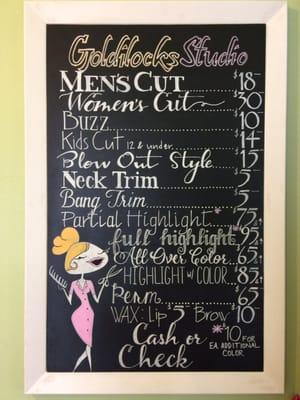 Goldilocks Studio
MEN'S CUT $18-
Women's Cut $30
Buzz $10
Kids Cut 12 & under $14
Blow Out Style $15
Neck Trim $5-
Bang Trim $5-
Partial Highlight* $75↑
full highlight* $95↑
All Over Color $65↑
HIGHLIGHT W/ COLOR $85↑
Perm $65
WAX: Lip $5- Brow $10
*10 FOR
EA. ADDITIONAL
COLOR
Cash or
Check